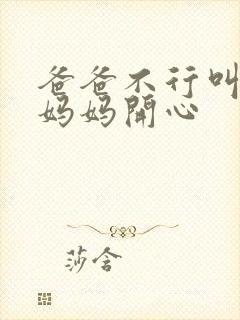 爸爸不行叫
妈妈開心
莎含